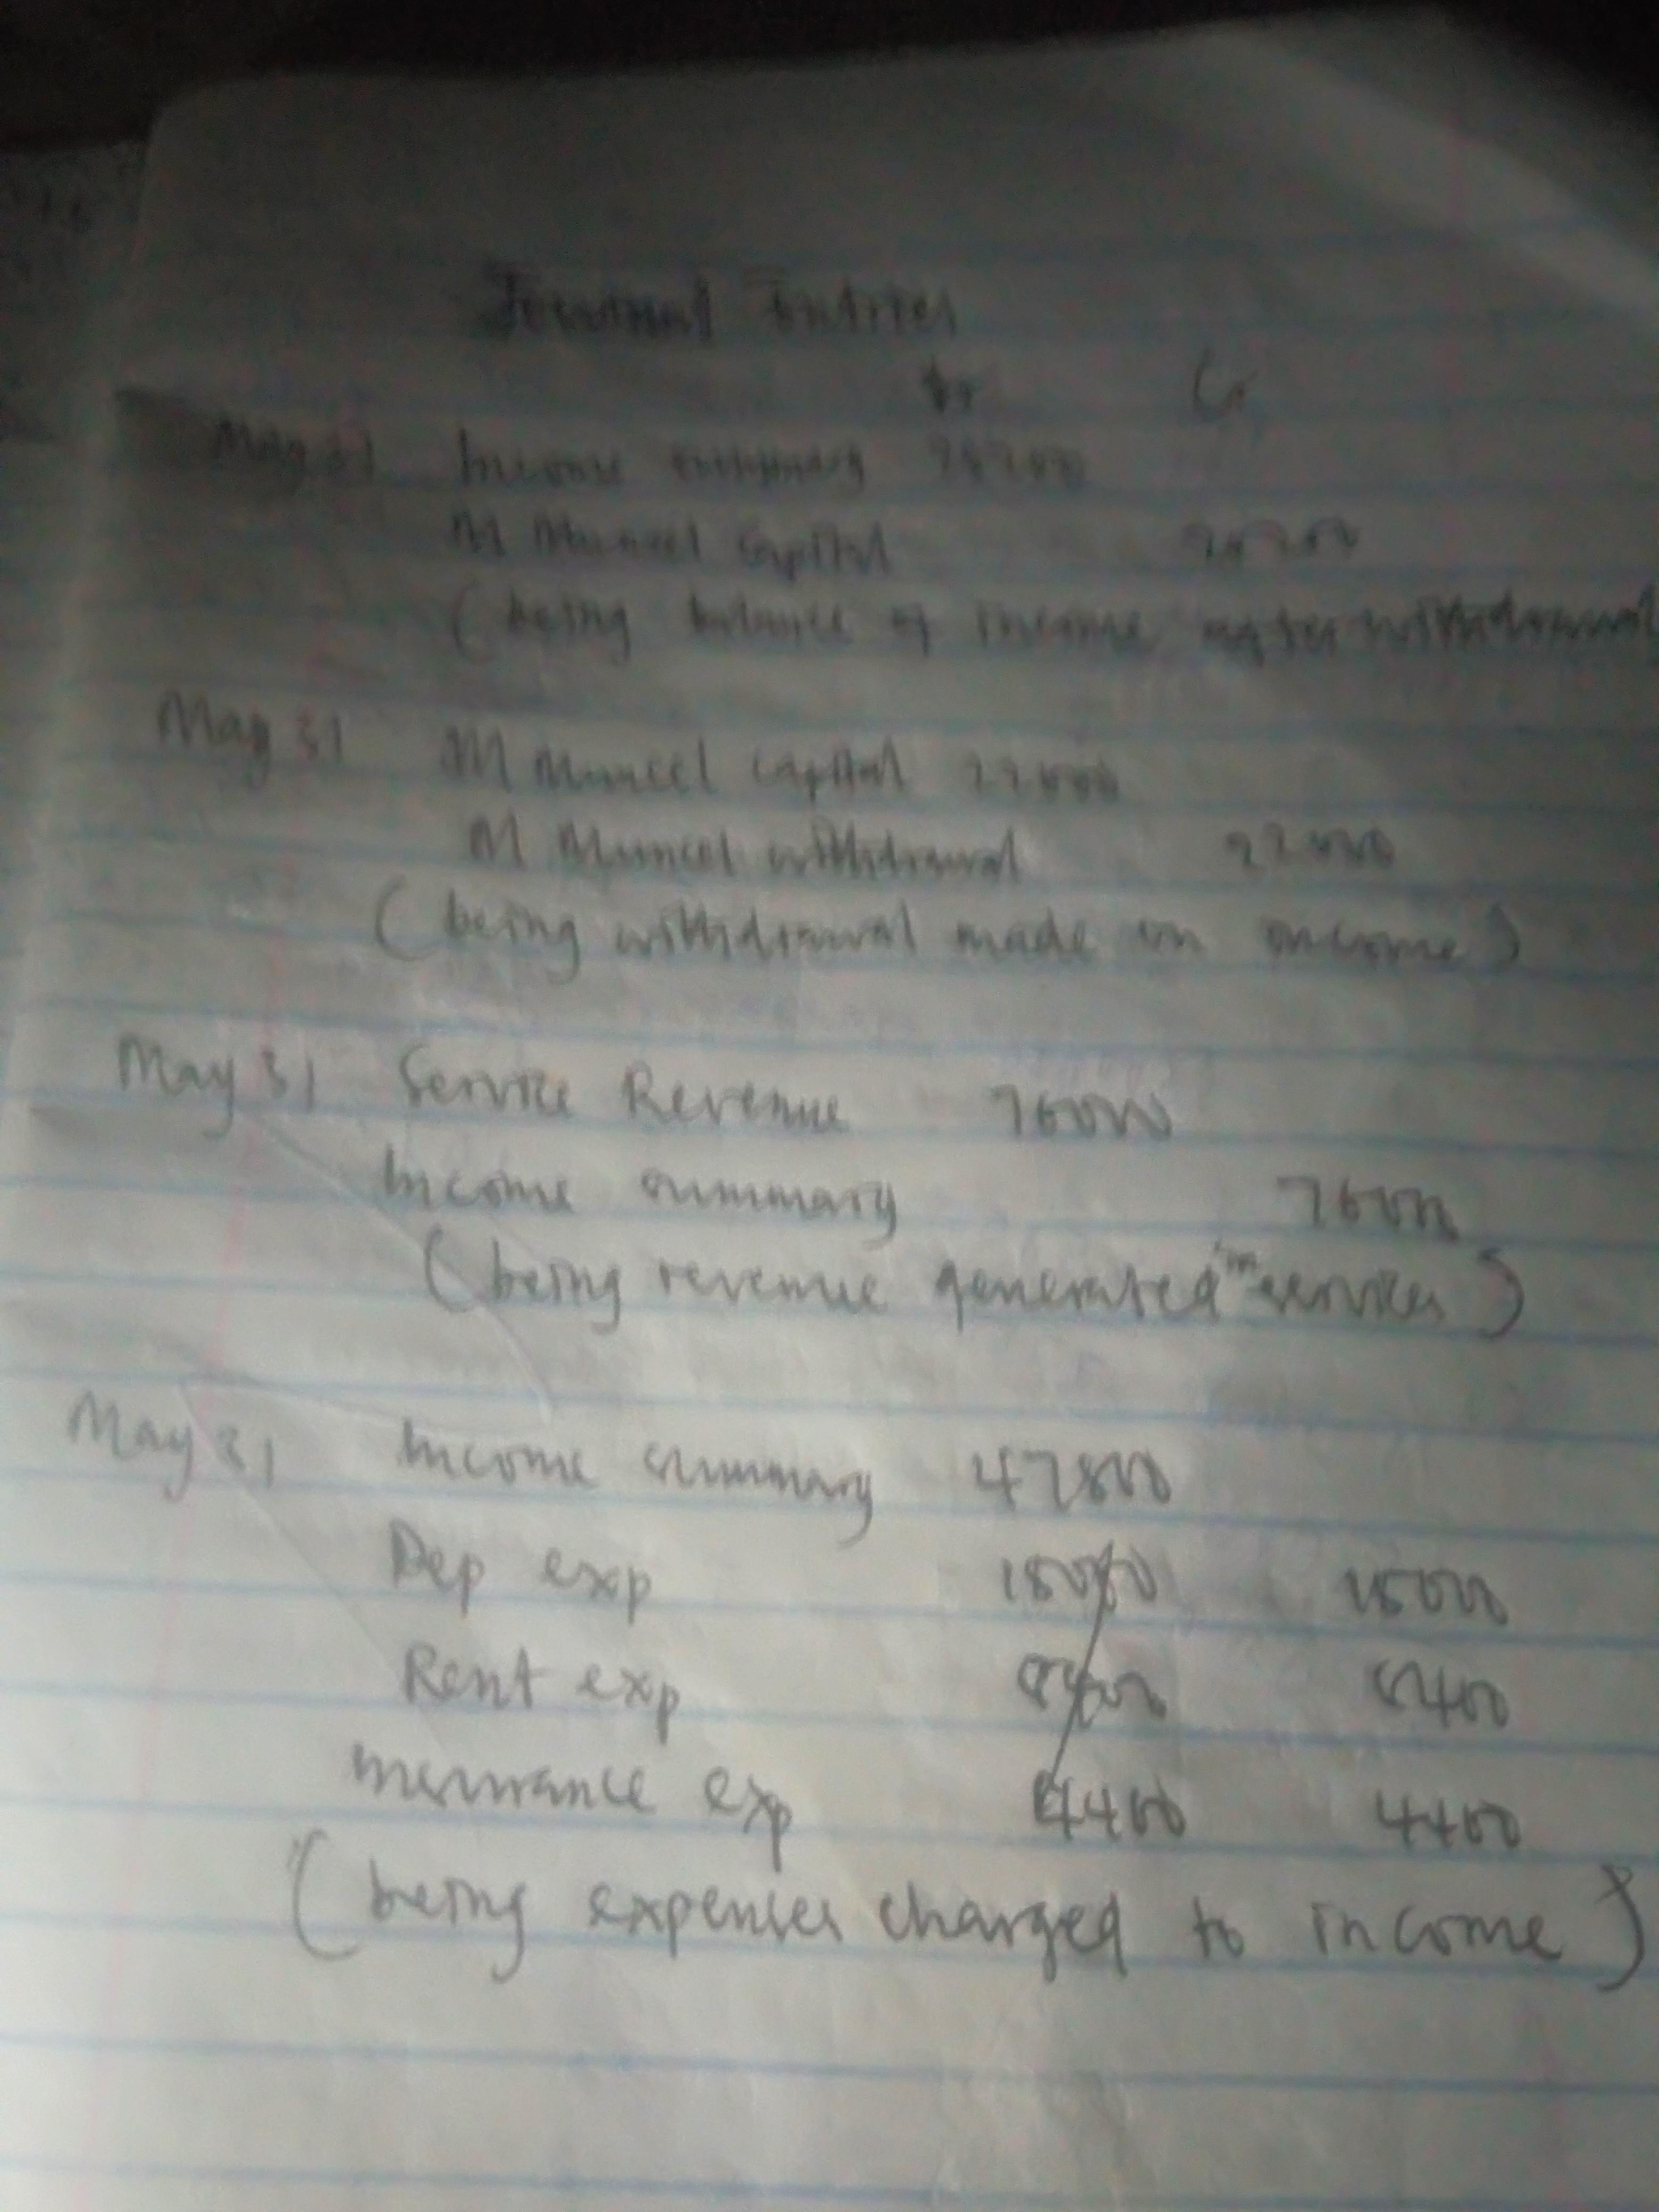 Journal Entries
Dr Cr
May 31 Income summary 28200
M Muncel Capital 28200
(being balance of income after withdrawal
May 31 M Muncel capital 22000
M Muncel withdrawal 22000
(being withdrawal made on income)
May 31 Service Revenue 76000
Income summary 76000
(being revenue generated in services)
May 31 Income summary 47800
Dep exp 15000
Rent exp 8400
Insurance exp 4400 4400
(being expenses charged to income)